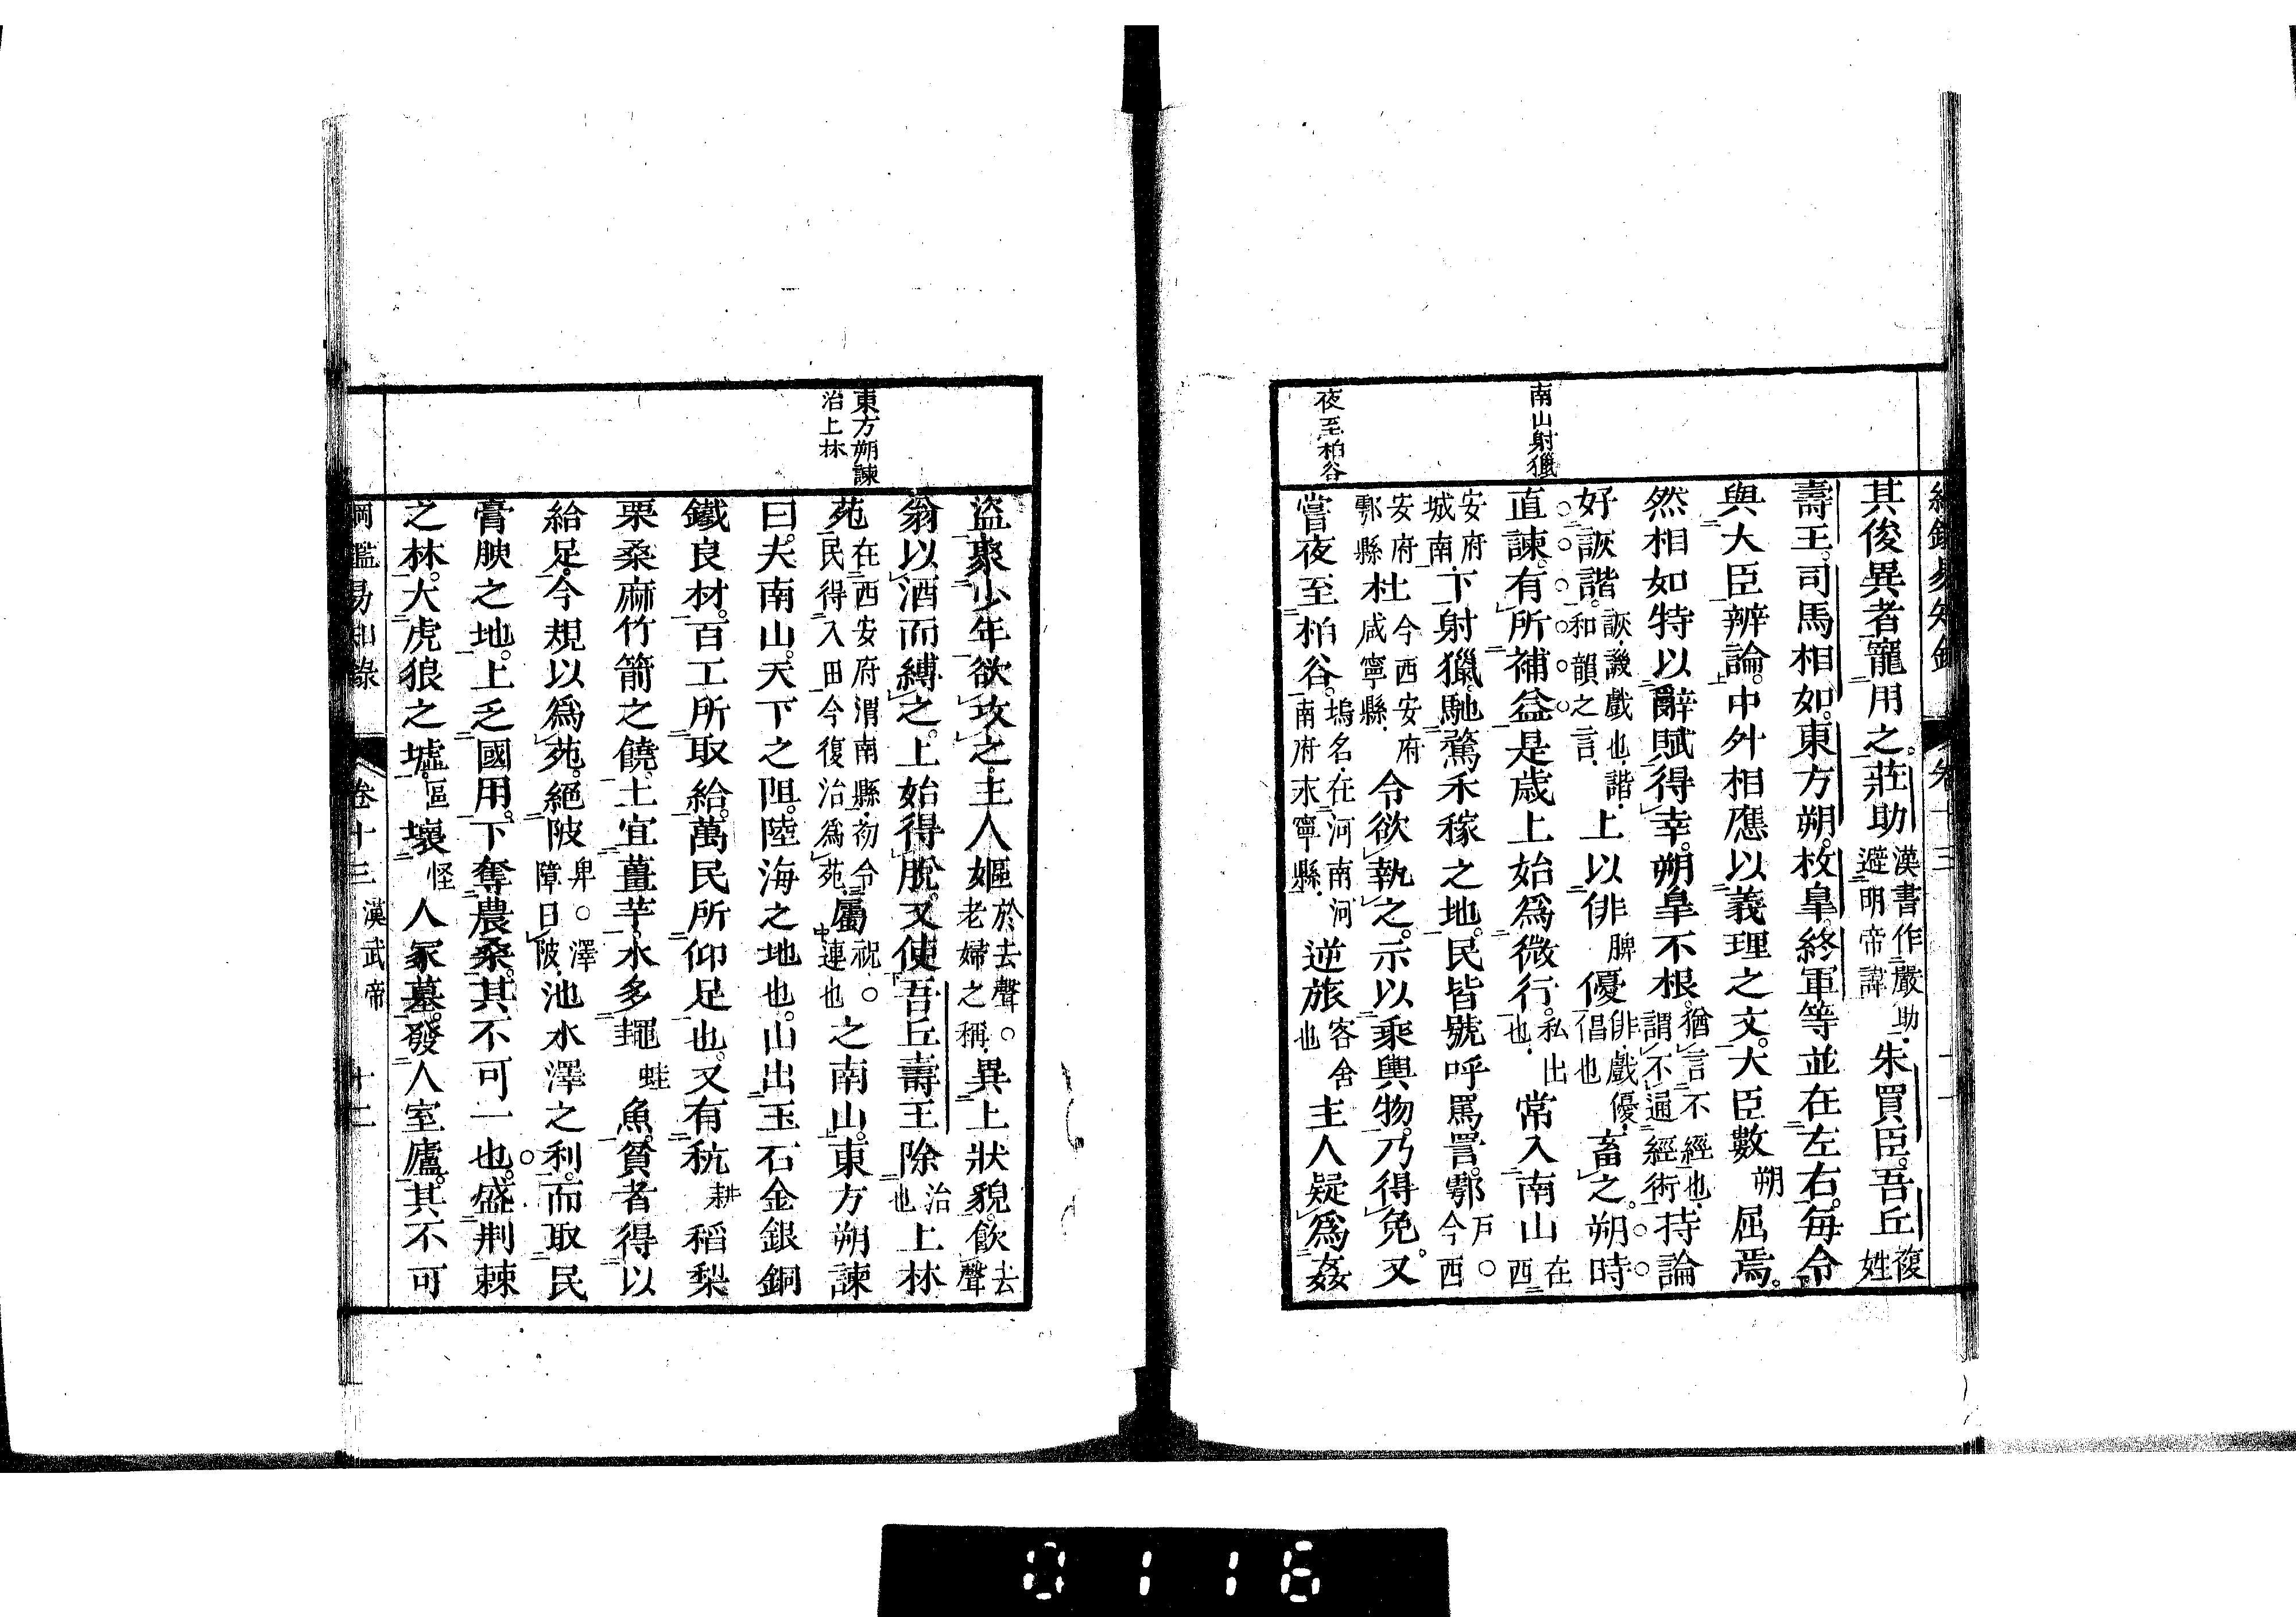 其俊異者寵用之莊助漢書作嚴助避明帝諱朱買臣吾丘複姓
壽王司馬相如東方朔枚皐終軍等並在左右每令
與大臣辨論中外相應以義理之文大臣數朔屈焉
然相如特以辭賦得幸朔皐不根猶言不經也謂不通經術持論
好詼諧詼譏戲也諧和韻之言上以俳脾優俳戲優倡也畜之朔時
南山射獵
直諫有所補益是歲上始爲微行私出也常入南山在西
安府城南下射獵馳騖禾稼之地民皆號呼罵詈鄠戸○今西
安府鄠縣杜今西安府咸寧縣令欲執之示以乘輿物乃得免又
夜至柏谷
嘗夜至柏谷塢名在河南河南府永寧縣逆旅客舍也主人疑爲姦
盜聚少年欲攻之主人嫗於去聲○老婦之稱異上狀貌飲去聲
翁以酒而縛之上始得脫又使吾丘壽王除治也上林
東方朔諫
治上林
苑在西安府渭南縣初令民得入田今復治爲苑屬祝○連也之南山東方朔諫
曰夫南山天下之阻陸海之地也山出玉石金銀銅
鐵良材百工所取給萬民所仰足也又有秔耕稻梨
栗桑麻竹箭之饒土宜薑芋水多鼃蛙魚貧者得以
給足今規以爲苑絕陂卑○澤障曰陂池水澤之利而取民
膏腴之地上乏國用下奪農桑其不可一也盛荆棘
之林大虎狼之墟區壞怪人冢墓發人室廬其不可
綱鑑易知錄 卷十三 漢武帝 十二
0116